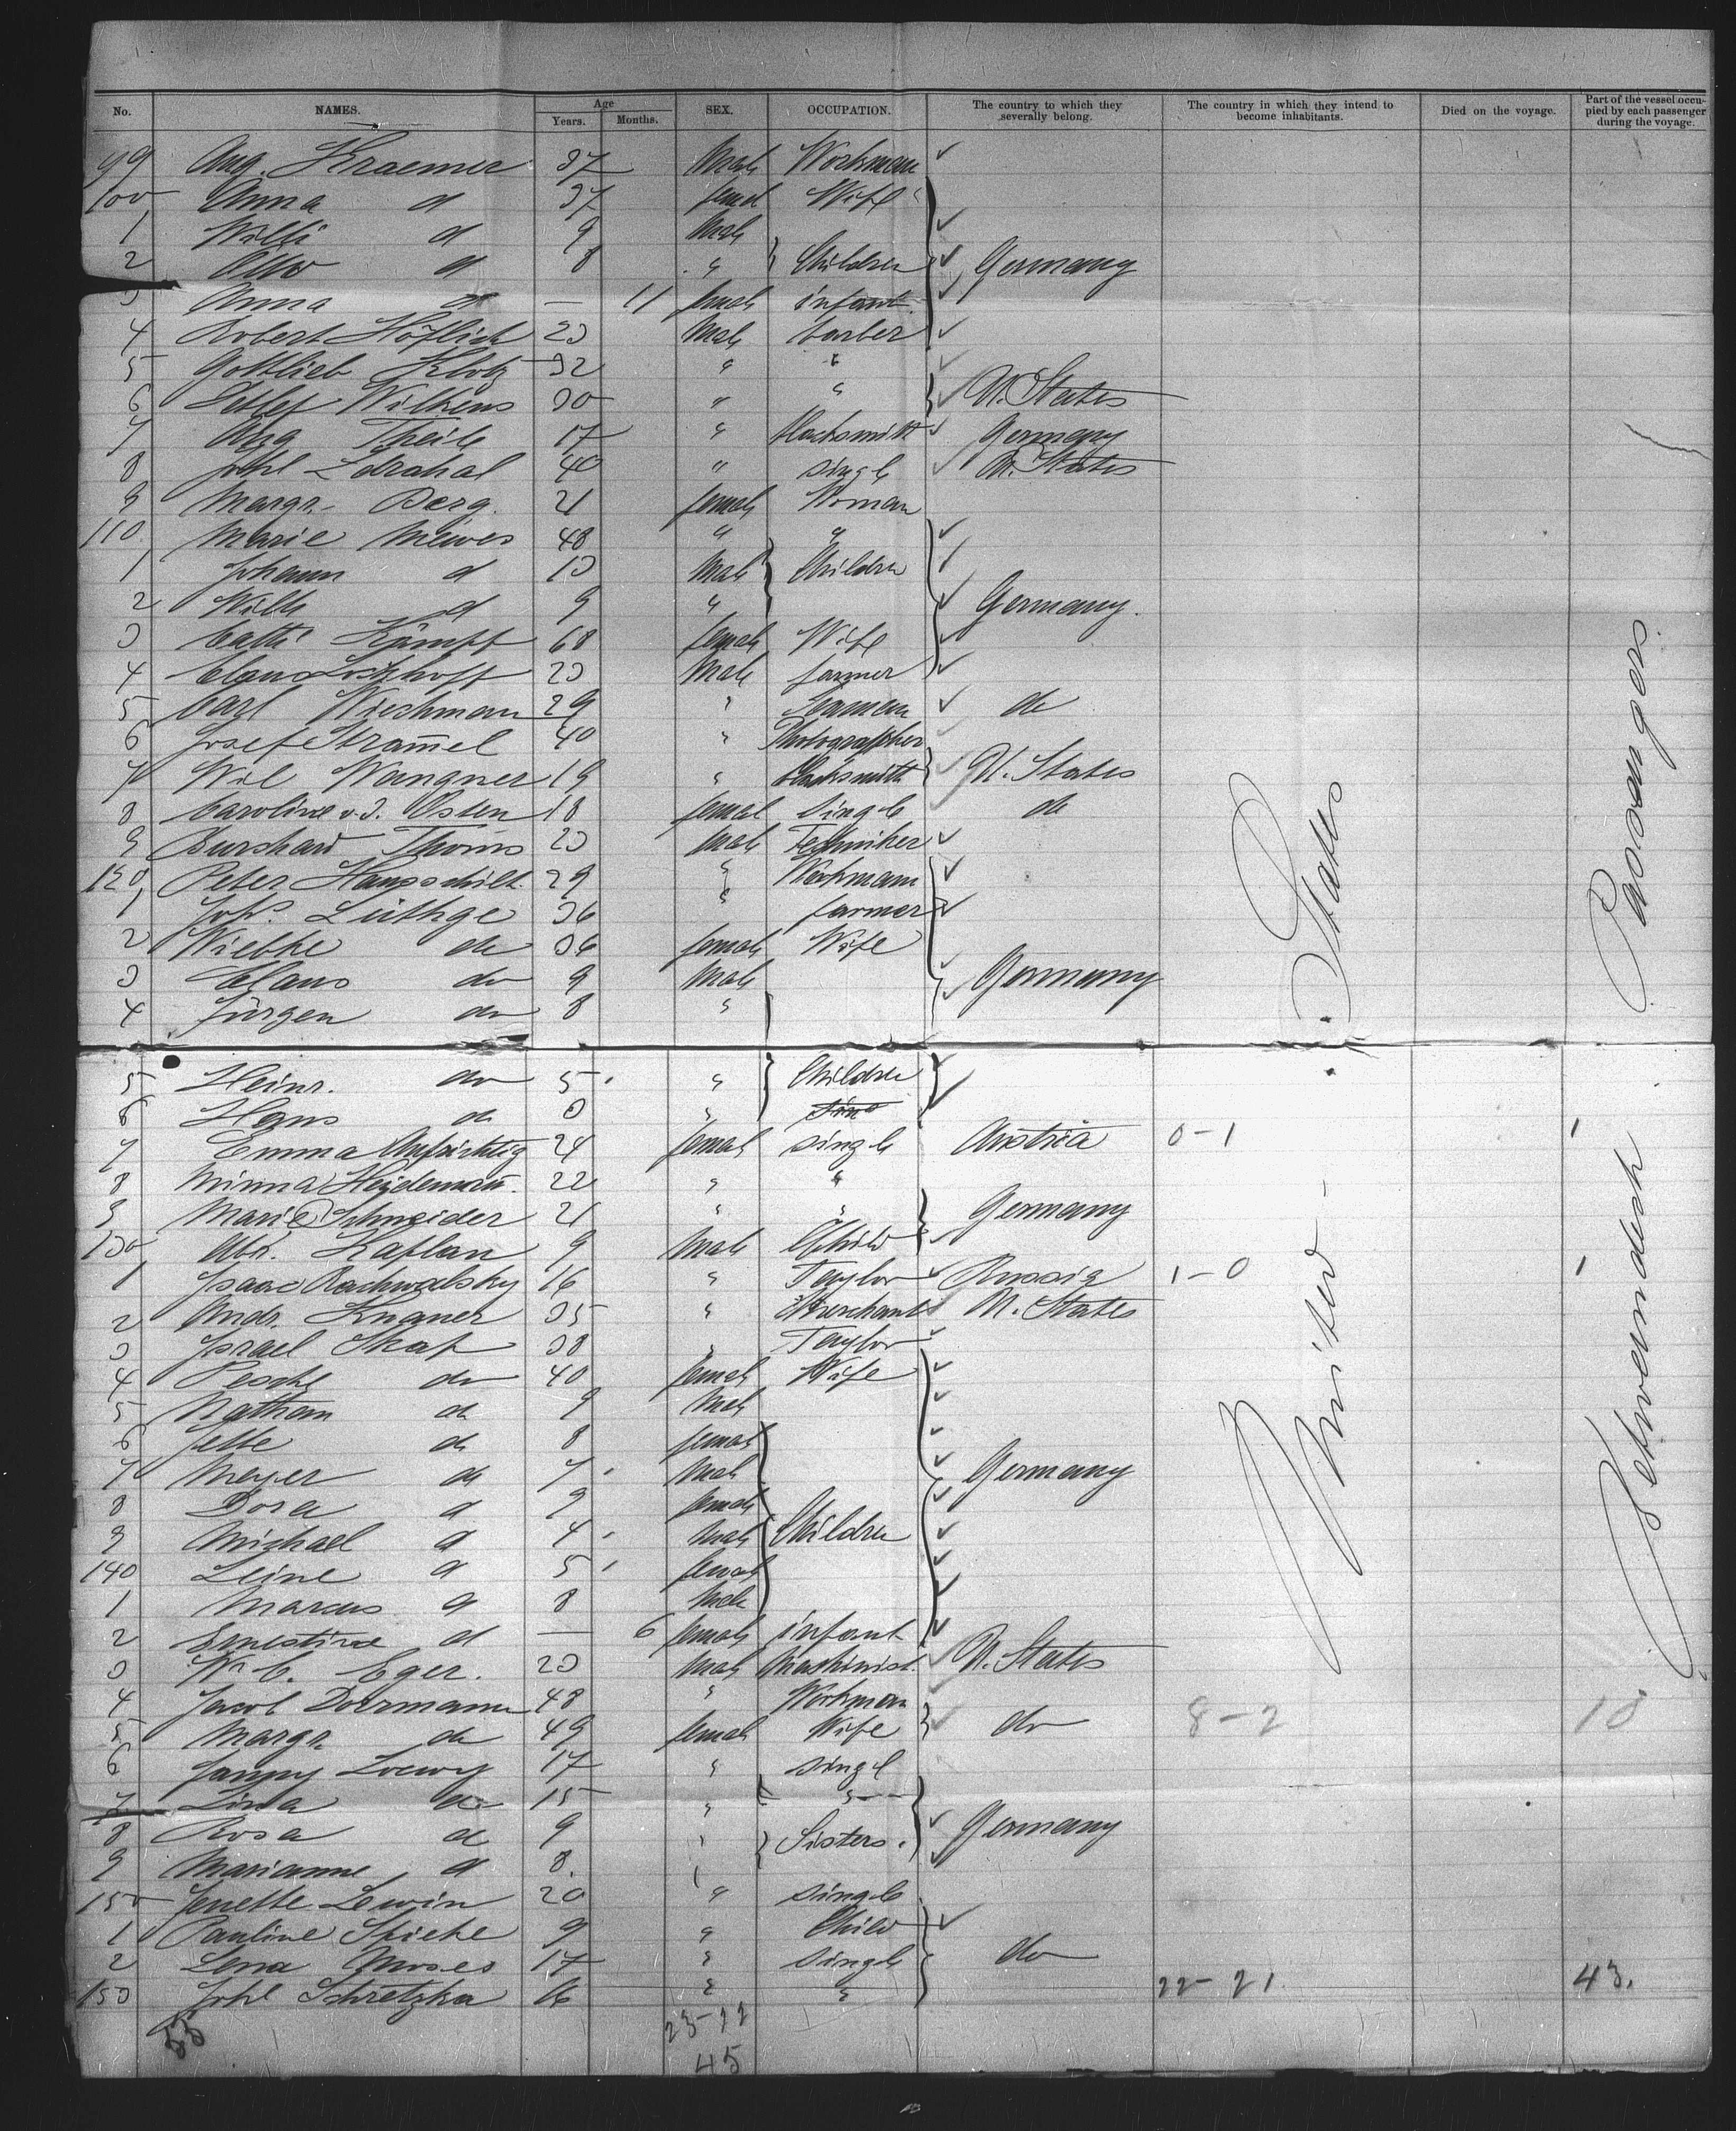 No. NAMES. Age Years. Months. SEX. OCCUPATION. The country to which they severally belong. The country in which they intend to become inhabitants. Died on the voyage. Part of the vessel occupied by each passenger during the voyage.
99 Aug. Kraemer 37 Male Workman
100 Anna d 37 femal Wife
1 Willi d 9 Male
2 Otto d 8 " Children Germany
3 Anna d — 11 female infant
4 Robert Höflich 23 Male barber
5 Gottlieb Klotz 32 " "
6 Detlef Wilkens 30 " " U. States
7 Aug Theile 17 " blacksmith Germany
8 40 " single U. States
9 Margr. Berg. 21 female Woman
110 Marie Mewes 48 " "
1 Johann d 10 Male Children
2 Willy d 9 " Germany.
3 Cath Kämpf 68 female Wife
4 Claus 23 Male farmer
5 Carl Wiechmann 29 " Seaman do
6 Josef Stramel 40 " Photographer
7 Wil Wangner 19 " blacksmith U. States
8 Caroline v. d. Osten 18 femal Single do
9 Burchard Thoms 23 Male Techniker
120 Peter Haupschilt 29 " Workman
1 Johs. Lüthge 36 " farmer
2 Wiebke do 36 female Wife
3 Claus do 9 Male Germany
4 Jürgen do 8 "
5 Heinr. do 5 " Children
6 Hans do 3 "
7 Emma Aufrichtig 24 female single Austria 0-1 1
8 Minna Heydemann. 22 " "
9 Marie Schneider 21 " " Germany
130 Abr. Kaplan 9 Male Child
1 Isaac Rachwalsky 16 " Taylor Russia 1-0 1
2 Andr. Knaner 35 " Merchant U. States
3 Israel Skap 38 " Taylor
4 Pesche do 40 female Wife
5 Nathan do 9 Male
6 Jette do 8 female
7 Meyer do 7 Male Germany
8 Dora d 9 female
9 Michael d 4 Male Children
140 Leine d 5 female
1 Marcus d 8 Male
2 Ernestine d — 6 female infant
3 Wm C. Eger. 23 Male Mashinist. U. States
4 Jacob Doermann 48 " Workman
5 Margr. do 49 female Wife do 8-2 10
6 Fanny Loewy 17 " singl
7 Lina do 15 " "
8 Rosa d 9 " Sisters. Germany
9 Marianne d 8. "
150 Jenette Lewin 20 " single
1 Pauline Stiehe 9 " Child
2 Lena Moses 17 " single do
153 16 " " 22-21. 43.
55 23-22
45
United States
Zwischendeck Passengers.